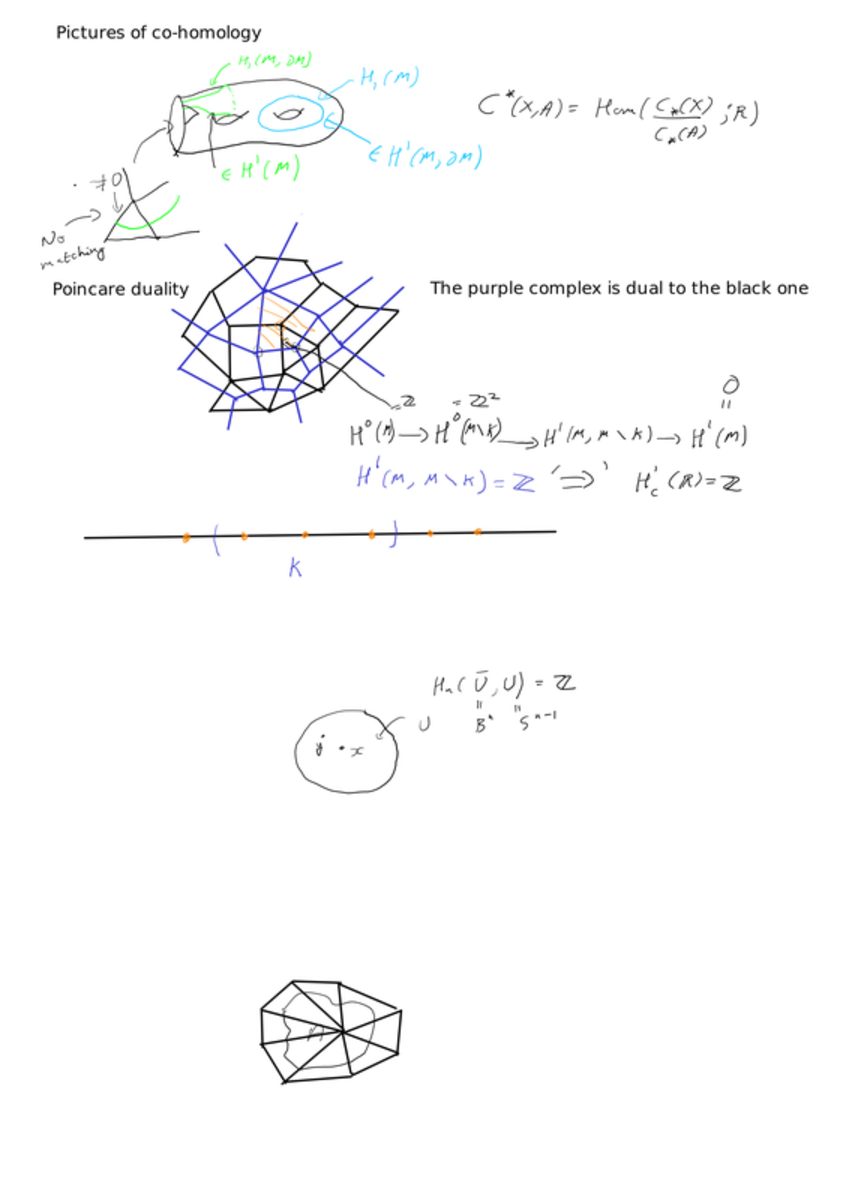 Pictures of co-homology
H₁(M, ∂M)
H₁(M)
C*(X,A) = Hom( C*(X) / C*(A) ; R)
∈ H'(M, ∂M)
∈ H'(M)
≠0
No matching
Poincare duality
The purple complex is dual to the black one
= ℤ
= ℤ²
0
=
H⁰(M) → H⁰(M\K) → H'(M, M\K) → H'(M)
H'(M, M\K) = ℤ '⇒' H'c(R) = ℤ
K
Hₙ(Ū, U) = ℤ
= =
U Bⁿ Sⁿ⁻¹
y · x